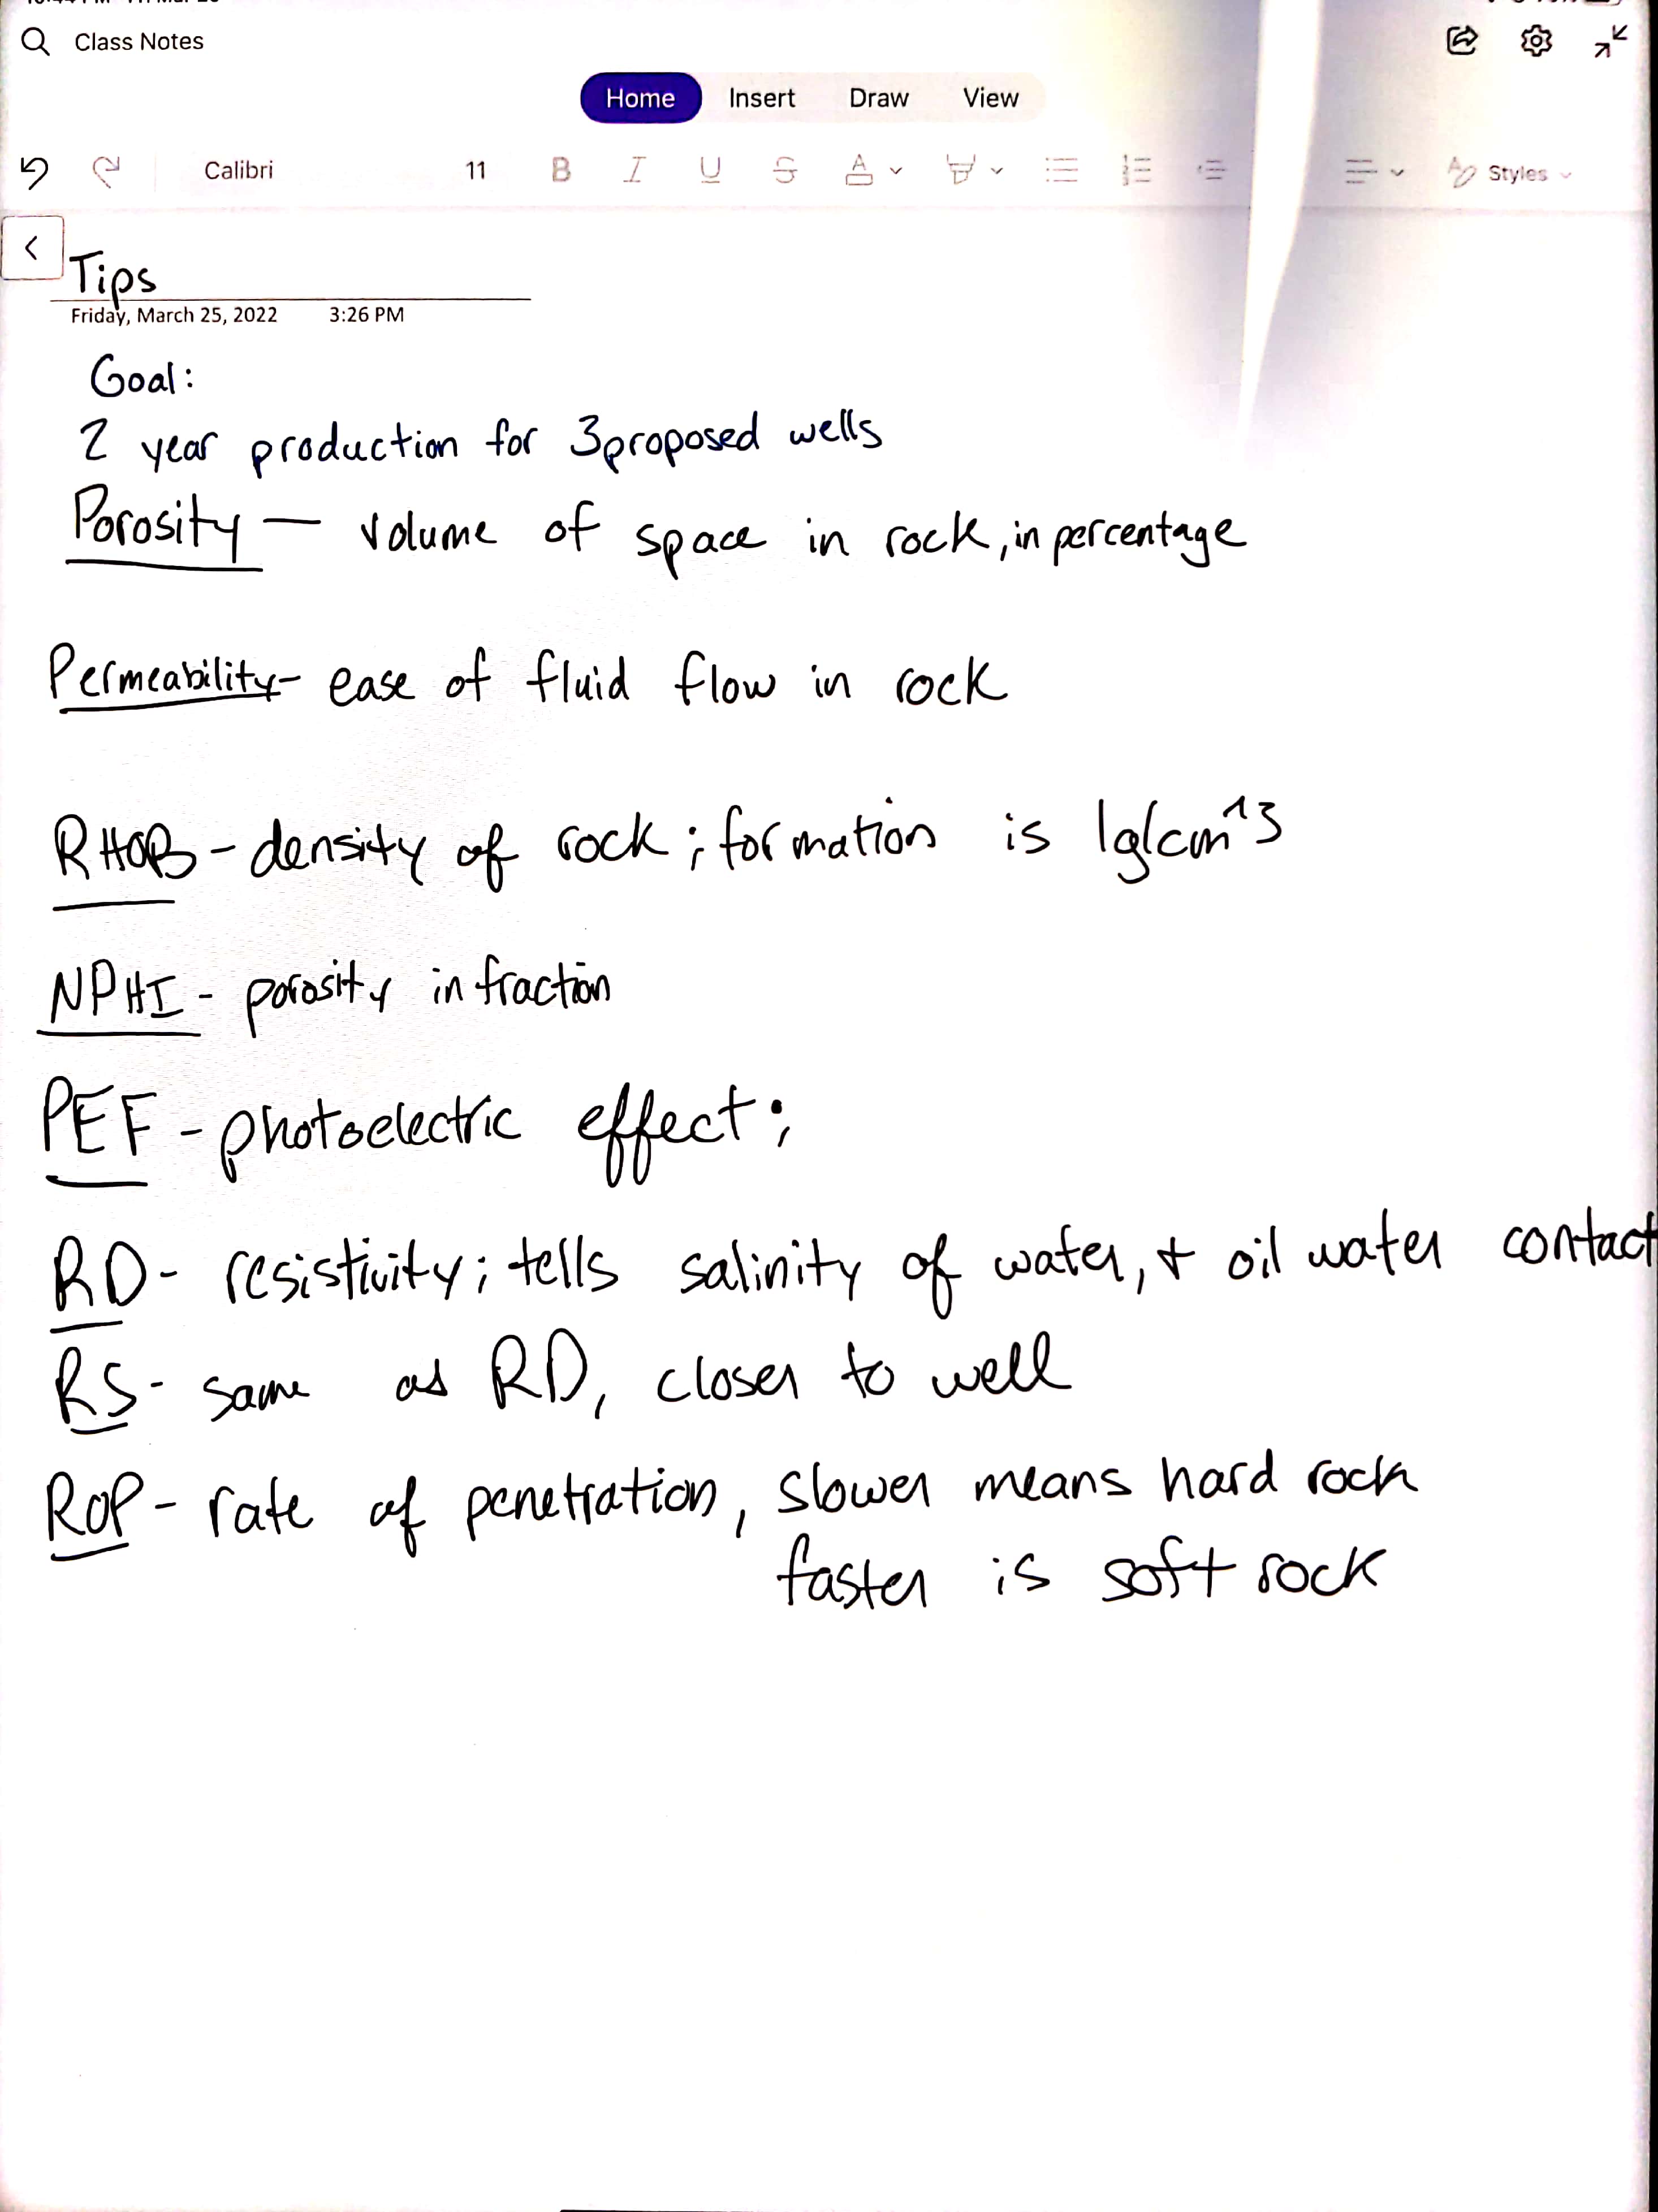 Class Notes
Home Insert Draw View
Calibri 11 B I U S A Styles
Tips
Friday, March 25, 2022 3:26 PM
Goal:
2 year production for 3 proposed wells
Porosity — volume of space in rock, in percentage
Permeability - ease of fluid flow in rock
RHOB - density of rock; formation is 1g/cm^3
NPHI - porosity in fraction
PEF - photoelectric effect;
RD - resistivity; tells salinity of water, + oil water contact
RS - same as RD, closer to well
ROP - rate of penetration, slower means hard rock
faster is soft rock